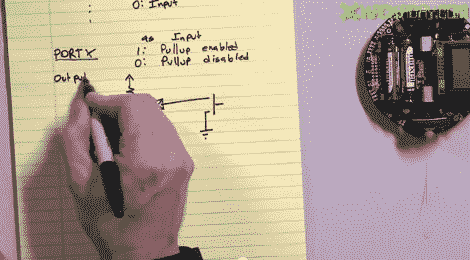 0: Input
as Input
PORTX 1: Pullup enabled
0: Pullup disabled
Outpu